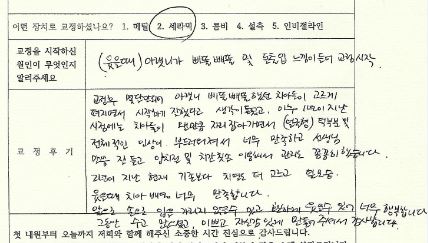 어떤 장치로 교정하셨나요? 1. 메탈 2. 세라믹 3. 콤비 4. 설측 5. 인비절라인
교정을 시작하신
원인이 무엇인지
말려주세요
(웃을때) 아랫니가 삐뚤빼뚤 및 돌출입 느낌이 들어 교정시작.
교정후기
교정후 일단 아랫니 삐뚤빼뚤했던 치아들이 고르게
펴지면서 시작하기 잘했다고 생각이 들었고, 이후 1년이 지난
시점에는 치아들이 자리잡아가면서
전체적인 인상이 부드러워져서 너무 만족하고 선생님
말씀 잘 듣고 양치질 및 치간칫솔 관리도 꼼꼼히 했습니다.
지난 현재 기존보다 치열도 더 고르고
웃을때 치아 배열 너무 만족합니다.
앞으로 손으로 입을 가리지 않은수 있고 환하게 웃을수 있어 너무 행복합니다
그동안 수고 많으셨고, 이쁘고 자신감 있게 만들어 주셔서 감사합니다.
첫 내원부터 오늘까지 저희와 함께 해주신 소중한 시간 진심으로 감사드립니다.